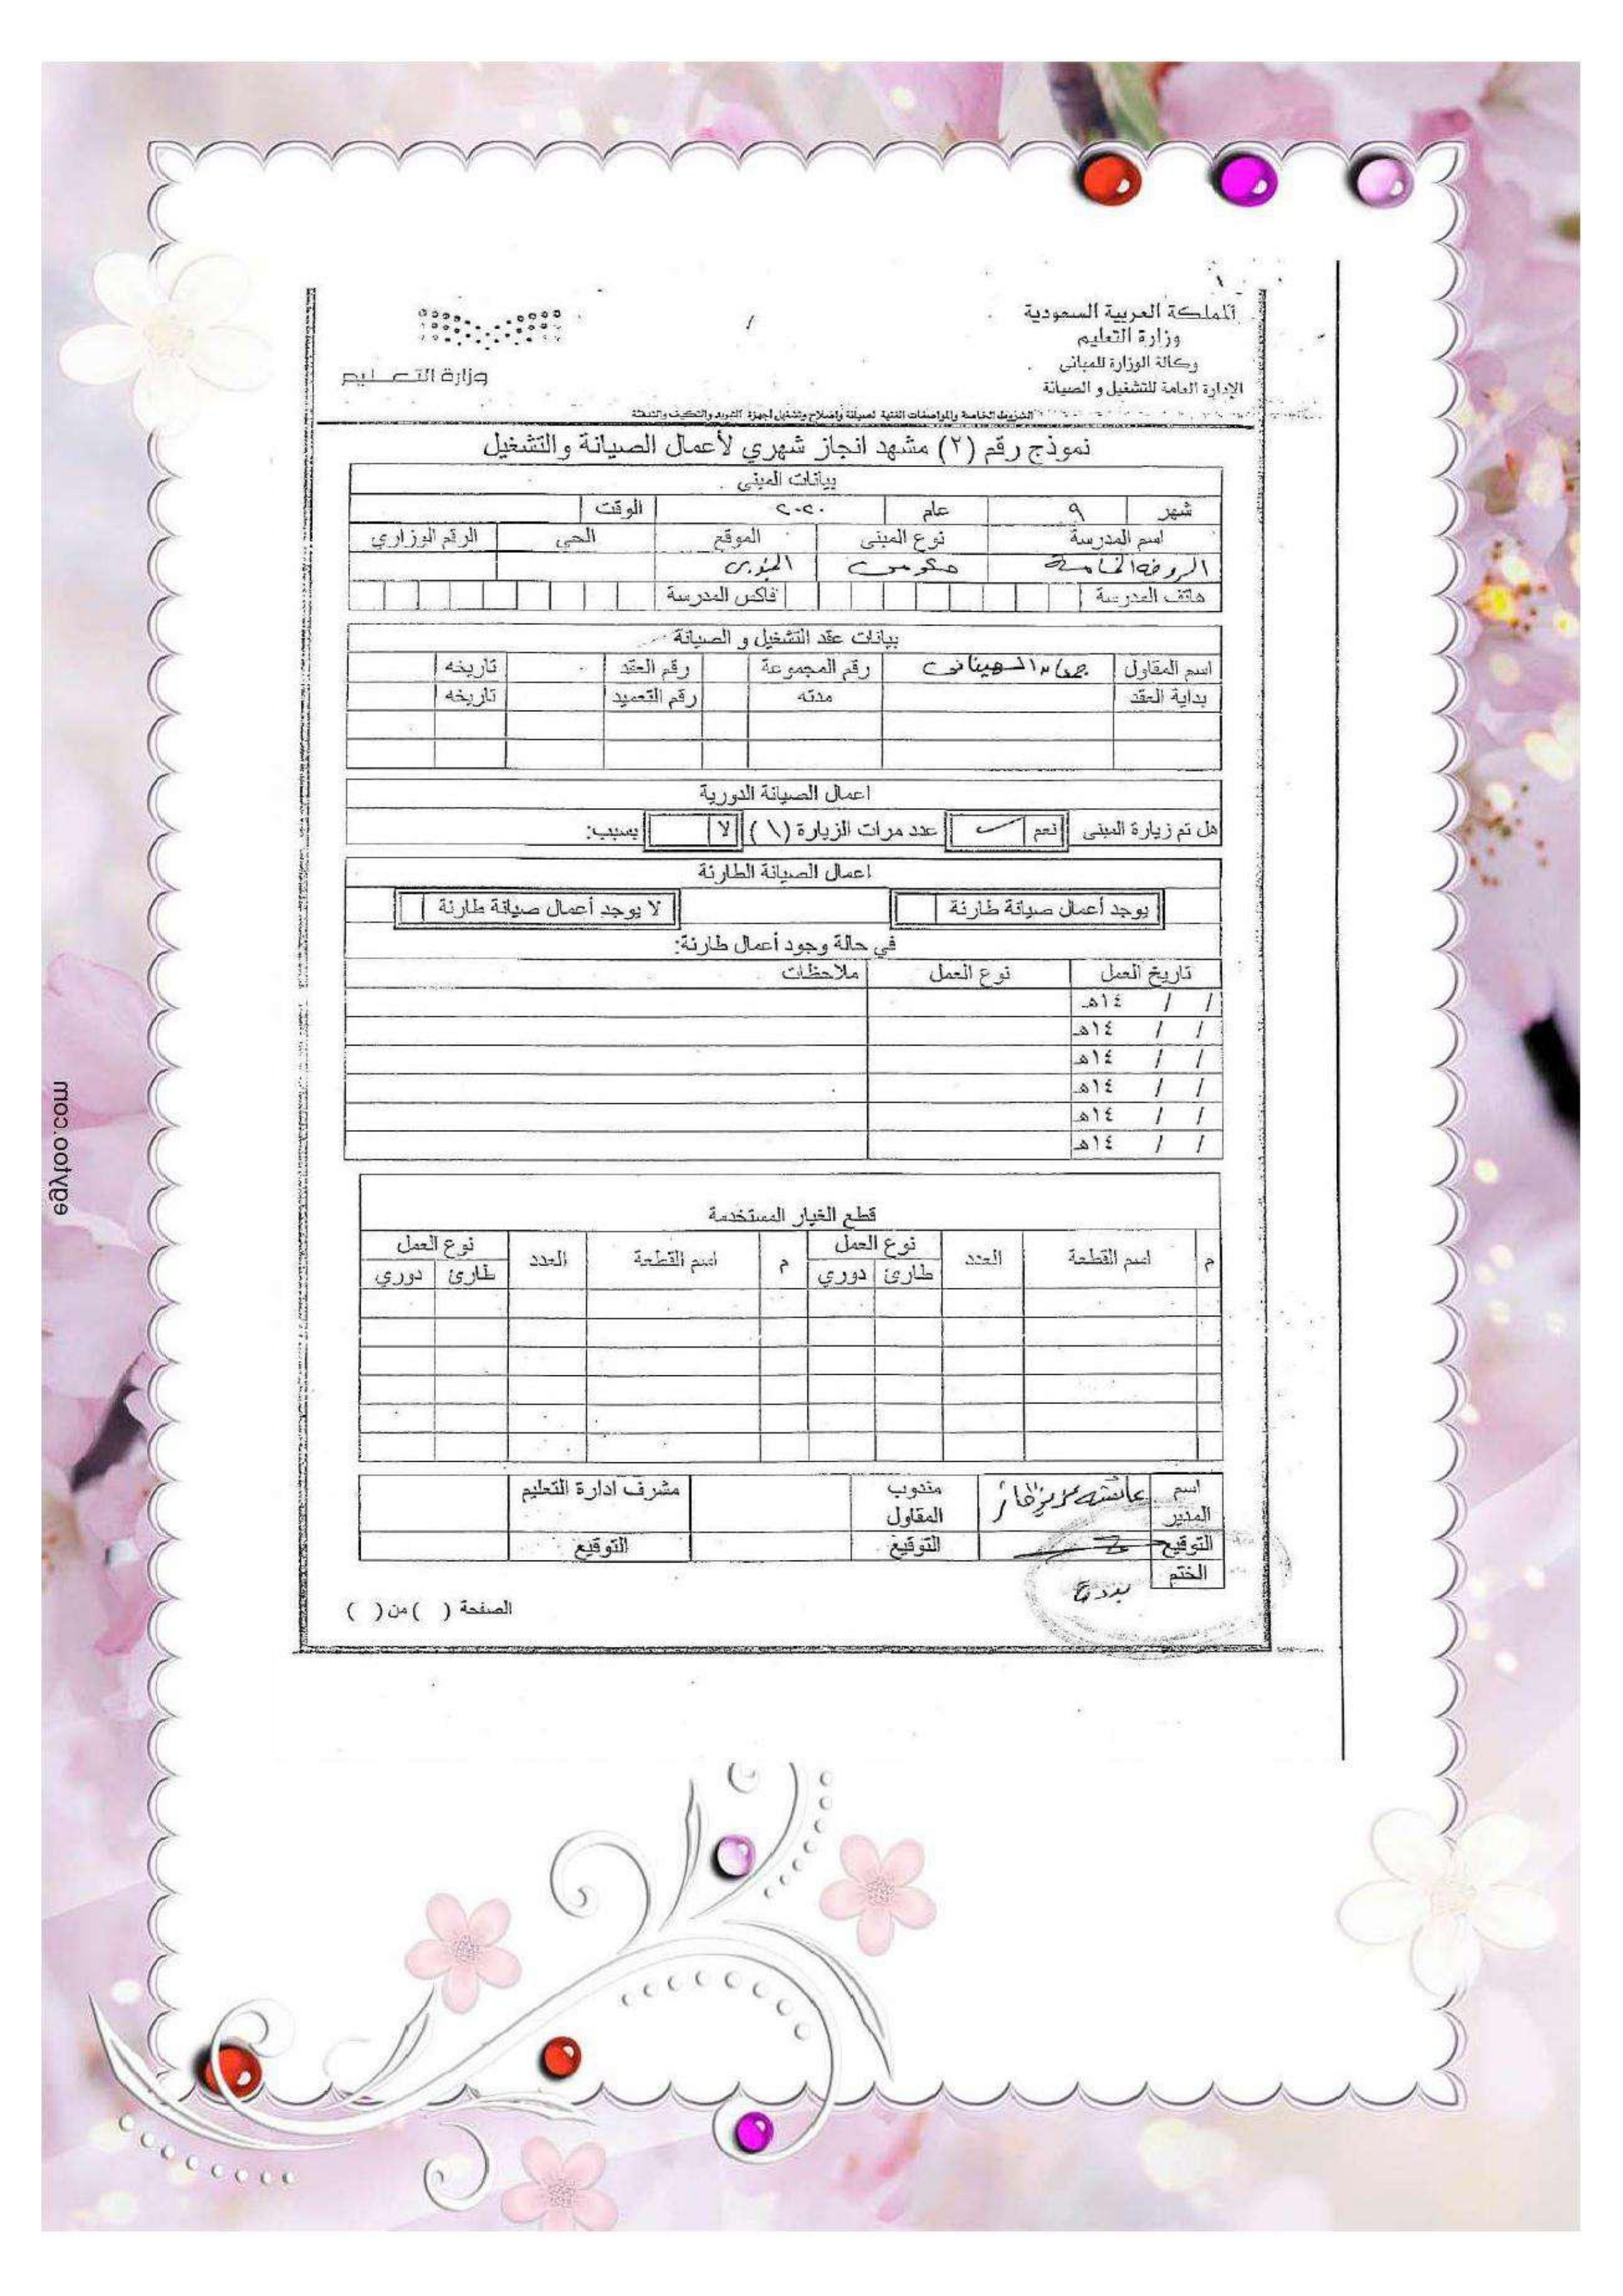 المملكة العربية السعودية
وزارة التعليم
وكالة الوزارة للمباني
الإدارة العامة للتشغيل و الصيانة
وزارة التعليم
الشروط الخاصة والمواصفات الفنية لصيانة وإصلاح وتشغيل أجهزة التبريد والتكييف والتدفئة
نموذج رقم (٢) مشهد انجاز شهري لأعمال الصيانة والتشغيل
بيانات المبنى
شهر ٩ عام ٢٠٢٠ الوقت
اسم المدرسة نوع المبنى الموقع الحي الرقم الوزاري
الروضة الخامسة حكومي
هاتف المدرسة فاكس المدرسة
بيانات عقد التشغيل و الصيانة
اسم المقاول رقم المجموعة رقم العقد تاريخه
بداية العقد مدته رقم التعميد تاريخه
اعمال الصيانة الدورية
هل تم زيارة المبنى نعم عدد مرات الزيارة (١) لا بسبب:
اعمال الصيانة الطارئة
يوجد أعمال صيانة طارئة لا يوجد أعمال صيانة طارئة
في حالة وجود أعمال طارئة:
تاريخ العمل نوع العمل ملاحظات
/ / ١٤هـ
/ / ١٤هـ
/ / ١٤هـ
/ / ١٤هـ
/ / ١٤هـ
/ / ١٤هـ
قطع الغيار المستخدمة
م اسم القطعة العدد نوع العمل م اسم القطعة العدد نوع العمل
طارئ دوري طارئ دوري
اسم المدير عائشه مندوب المقاول مشرف ادارة التعليم
التوقيع التوقيع التوقيع
الختم
الصفحة ( ) من ( )
egytoo.com